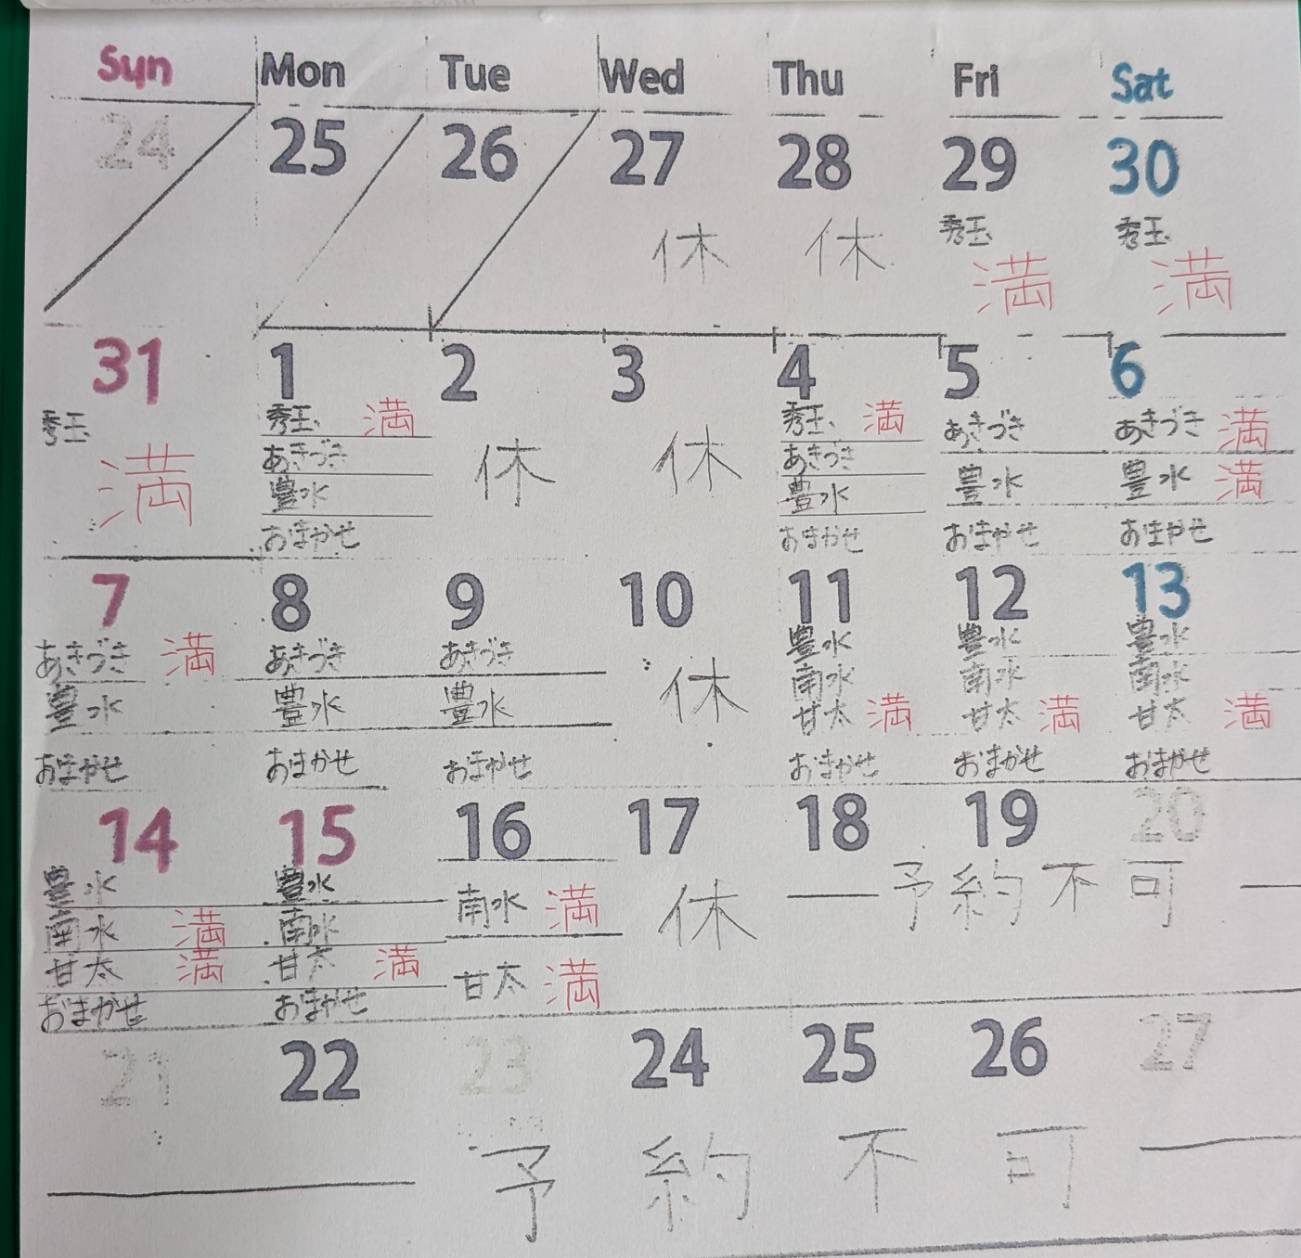 Sun Mon Tue Wed Thu Fri Sat
24 25 26 27 28 29 30
休 休 秀玉 秀玉
満 満
31 1 2 3 4 5 6
秀玉 秀玉 満 休 休 秀玉 満 あきづき あきづき 満
満 あきづき あきづき 豊水 豊水 満
豊水 豊水
おまかせ おまかせ おまかせ おまかせ
7 8 9 10 11 12 13
あきづき 満 あきづき あきづき 休 豊水 豊水 豊水
豊水 豊水 豊水 南水 南水 南水
甘太 満 甘太 満 甘太 満
おまかせ おまかせ おまかせ おまかせ おまかせ おまかせ
14 15 16 17 18 19 20
豊水 豊水 南水 満 休 予約不可
南水 満 南水
甘太 満 甘太 満 甘太 満
おまかせ おまかせ
21 22 23 24 25 26 27
予約不可